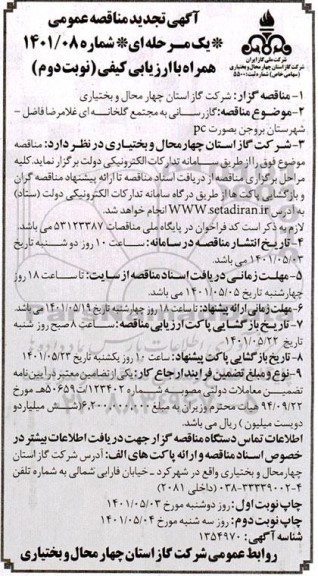 آگهی تجدید مناقصه عمومی
※یک مرحله ای※ شماره ۱۴۰۱/۰۸
همراه با ارزیابی کیفی (نوبت دوم)
شرکت ملی گاز ایران
شرکت گاز استان چهارمحال و بختیاری
(سهامی خاص) شماره ثبت: ۵۵۰۰
۱- مناقصه گزار: شرکت گاز استان چهار محال و بختیاری
۲-موضوع مناقصه: گازرسانی به مجتمع گلخانه ای غلامرضا فاضل -
شهرستان بروجن بصورت pc
۳-شرکت گاز استان چهارمحال و بختیاری در نظر دارد: مناقصه
موضوع فوق را از طریق سامانه تدارکات الکترونیکی دولت برگزار نماید. کلیه
مراحل برگزاری مناقصه از دریافت اسناد مناقصه تا ارائه پیشنهاد مناقصه گران
و بازگشایی پاکت ها از طریق درگاه سامانه تدارکات الکترونیکی دولت (ستاد)
به آدرس WWW.setadiran.ir انجام خواهد شد.
لازم به ذکر است کد فراخوان در پایگاه ملی مناقصات ۵۳۱۲۳۳۸۷ می باشد.
۴-تاریخ انتشار مناقصه در سامانه: ساعت ۱۰ روز دو شنبه تاریخ
۱۴۰۱/۰۵/۰۳ می باشد.
۵-مهلت زمانی دریافت اسناد مناقصه از سایت: تا ساعت ۱۸ روز
چهارشنبه تاریخ ۱۴۰۱/۰۵/۰۵ می باشد.
۶-مهلت زمانی ارائه پیشنهاد: تا ساعت ۱۸ روز چهارشنبه تاریخ ۱۴۰۱/۰۵/۱۹ می باشد.
۷-تاریخ بازگشایی پاکت ارزیابی مناقصه: ساعت ۸ صبح روز شنبه
تاریخ ۱۴۰۱/۰۵/۲۲
۸-تاریخ بازگشایی پاکت پیشنهاد: ساعت ۱۰ روز یکشنبه تاریخ ۱۴۰۱/۰۵/۲۳
۹-نوع و مبلغ تضمین فرایند ارجاع کار: یکی از تضامین معتبر در آیین نامه
تضمین معاملات دولتی مصوبه شماره ۱۲۳۴۰۲/ت۵۰۶۵۹هـ مورخ
۹۴/۰۹/۲۲ هیات محترم وزیران به مبلغ ۶،۲۰۰،۰۰۰،۰۰۰(شش میلیارد و
دویست میلیون) ریال می باشد.
اطلاعات تماس دستگاه مناقصه گزار جهت دریافت اطلاعات بیشتر در
خصوص اسناد مناقصه و ارائه پاکت های الف: آدرس شرکت گاز استان
چهارمحال و بختیاری واقع در شهرکرد -خیابان فارابی شمالی به شماره تلفن
۴-۰۳۸-۳۳۳۳۹۰۰۲ (داخلی ۲۰۸۱)
چاپ نوبت اول: روز دوشنبه مورخ ۱۴۰۱/۰۵/۰۳
چاپ نوبت دوم: روز سه شنبه مورخ ۱۴۰۱/۰۵/۰۴
شناسه آگهی: ۱۳۵۴۹۷۰
روابط عمومی شرکت گاز استان چهارمحال و بختیاری